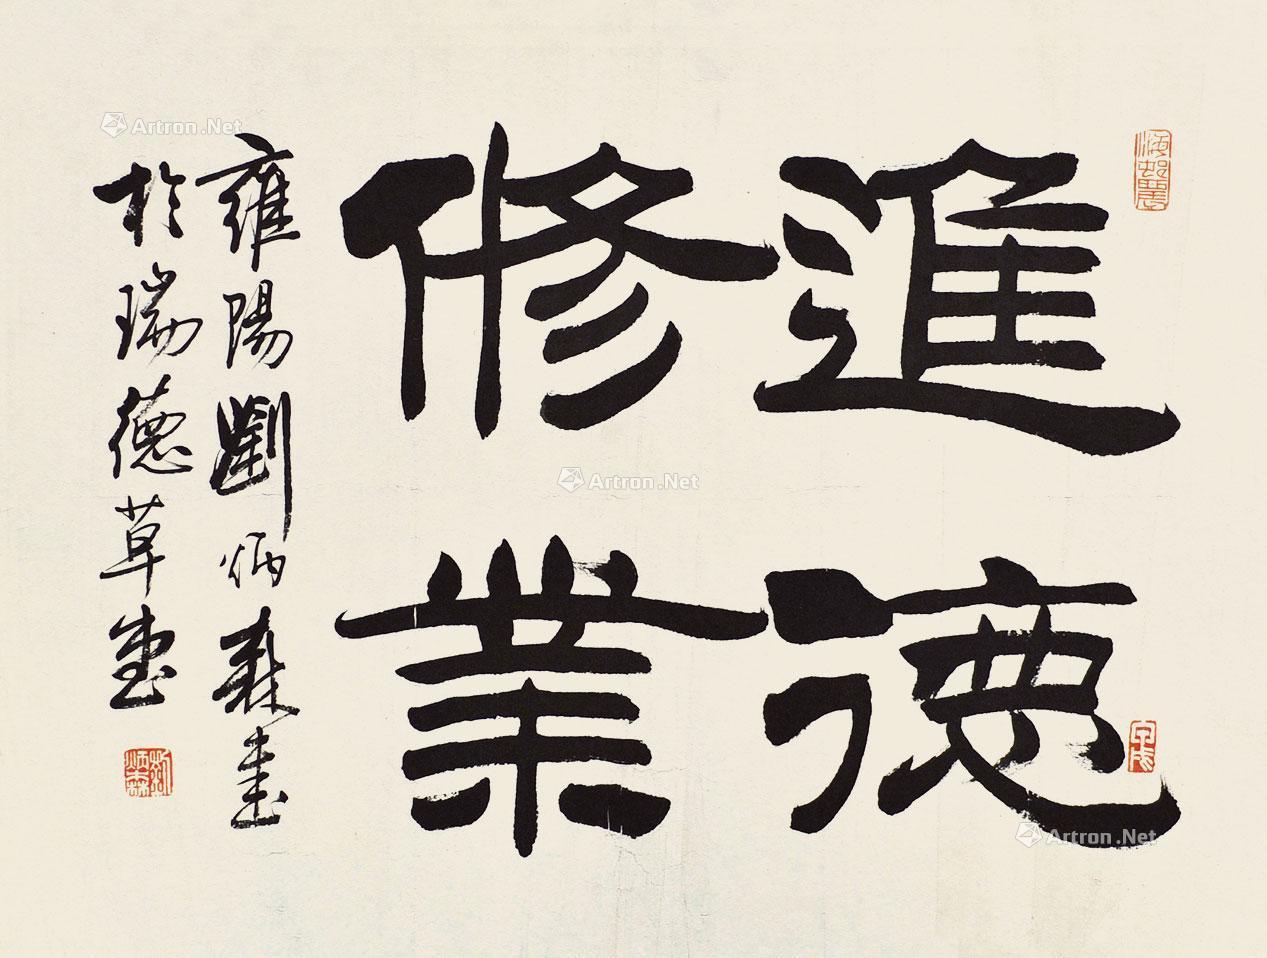 進德
修業
雍陽劉炳森書
於瑞德草堂
劉炳森
Artron.Net
Artron.Net
Artron.Net